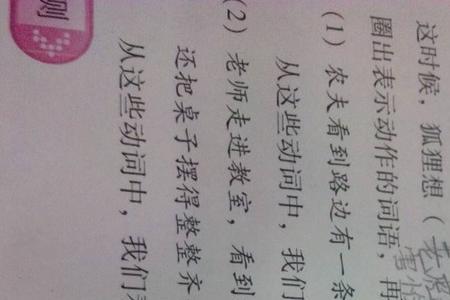 这时候，狐狸想（
圈出表示动作的词语，再
（1）农夫看到路边有一条
从这些动词中，我们
（2）老师走进教室，看到
还把桌子摆得整整齐
从这些动词中，我们
测